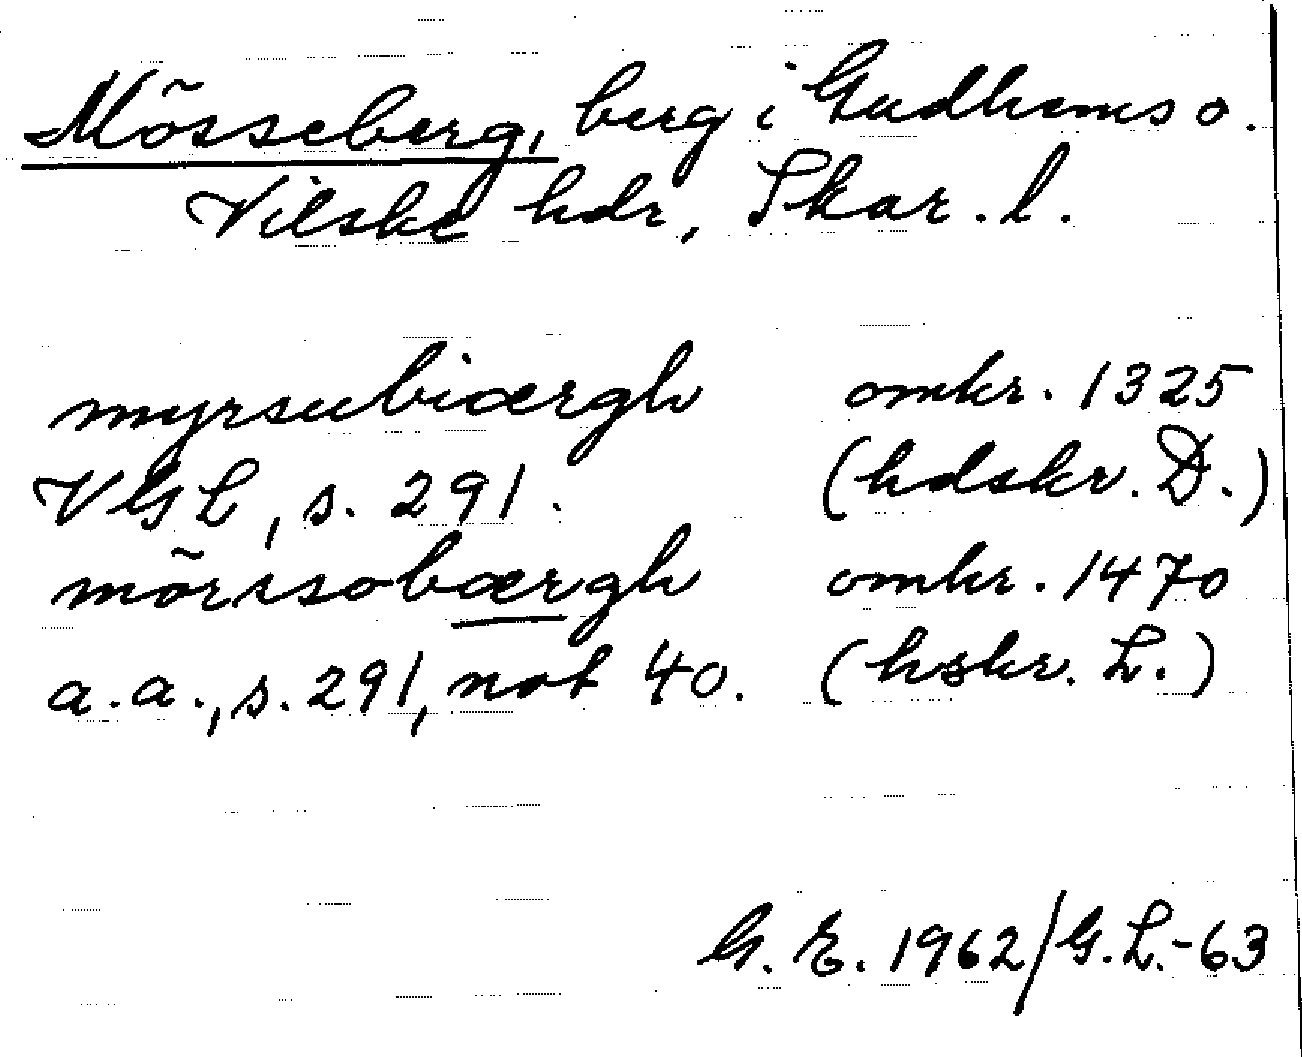 Mösseberg, berg i Gudhems o.
Vilske hdr, Skar. l.
myrsubiærgh omkr. 1325
VGL, s. 291. (hdskr. D.)
mörssobærgh omkr. 1470
a.a., s. 291, not 40. (hskr. L.)
G. E. 1962/G.L.-63